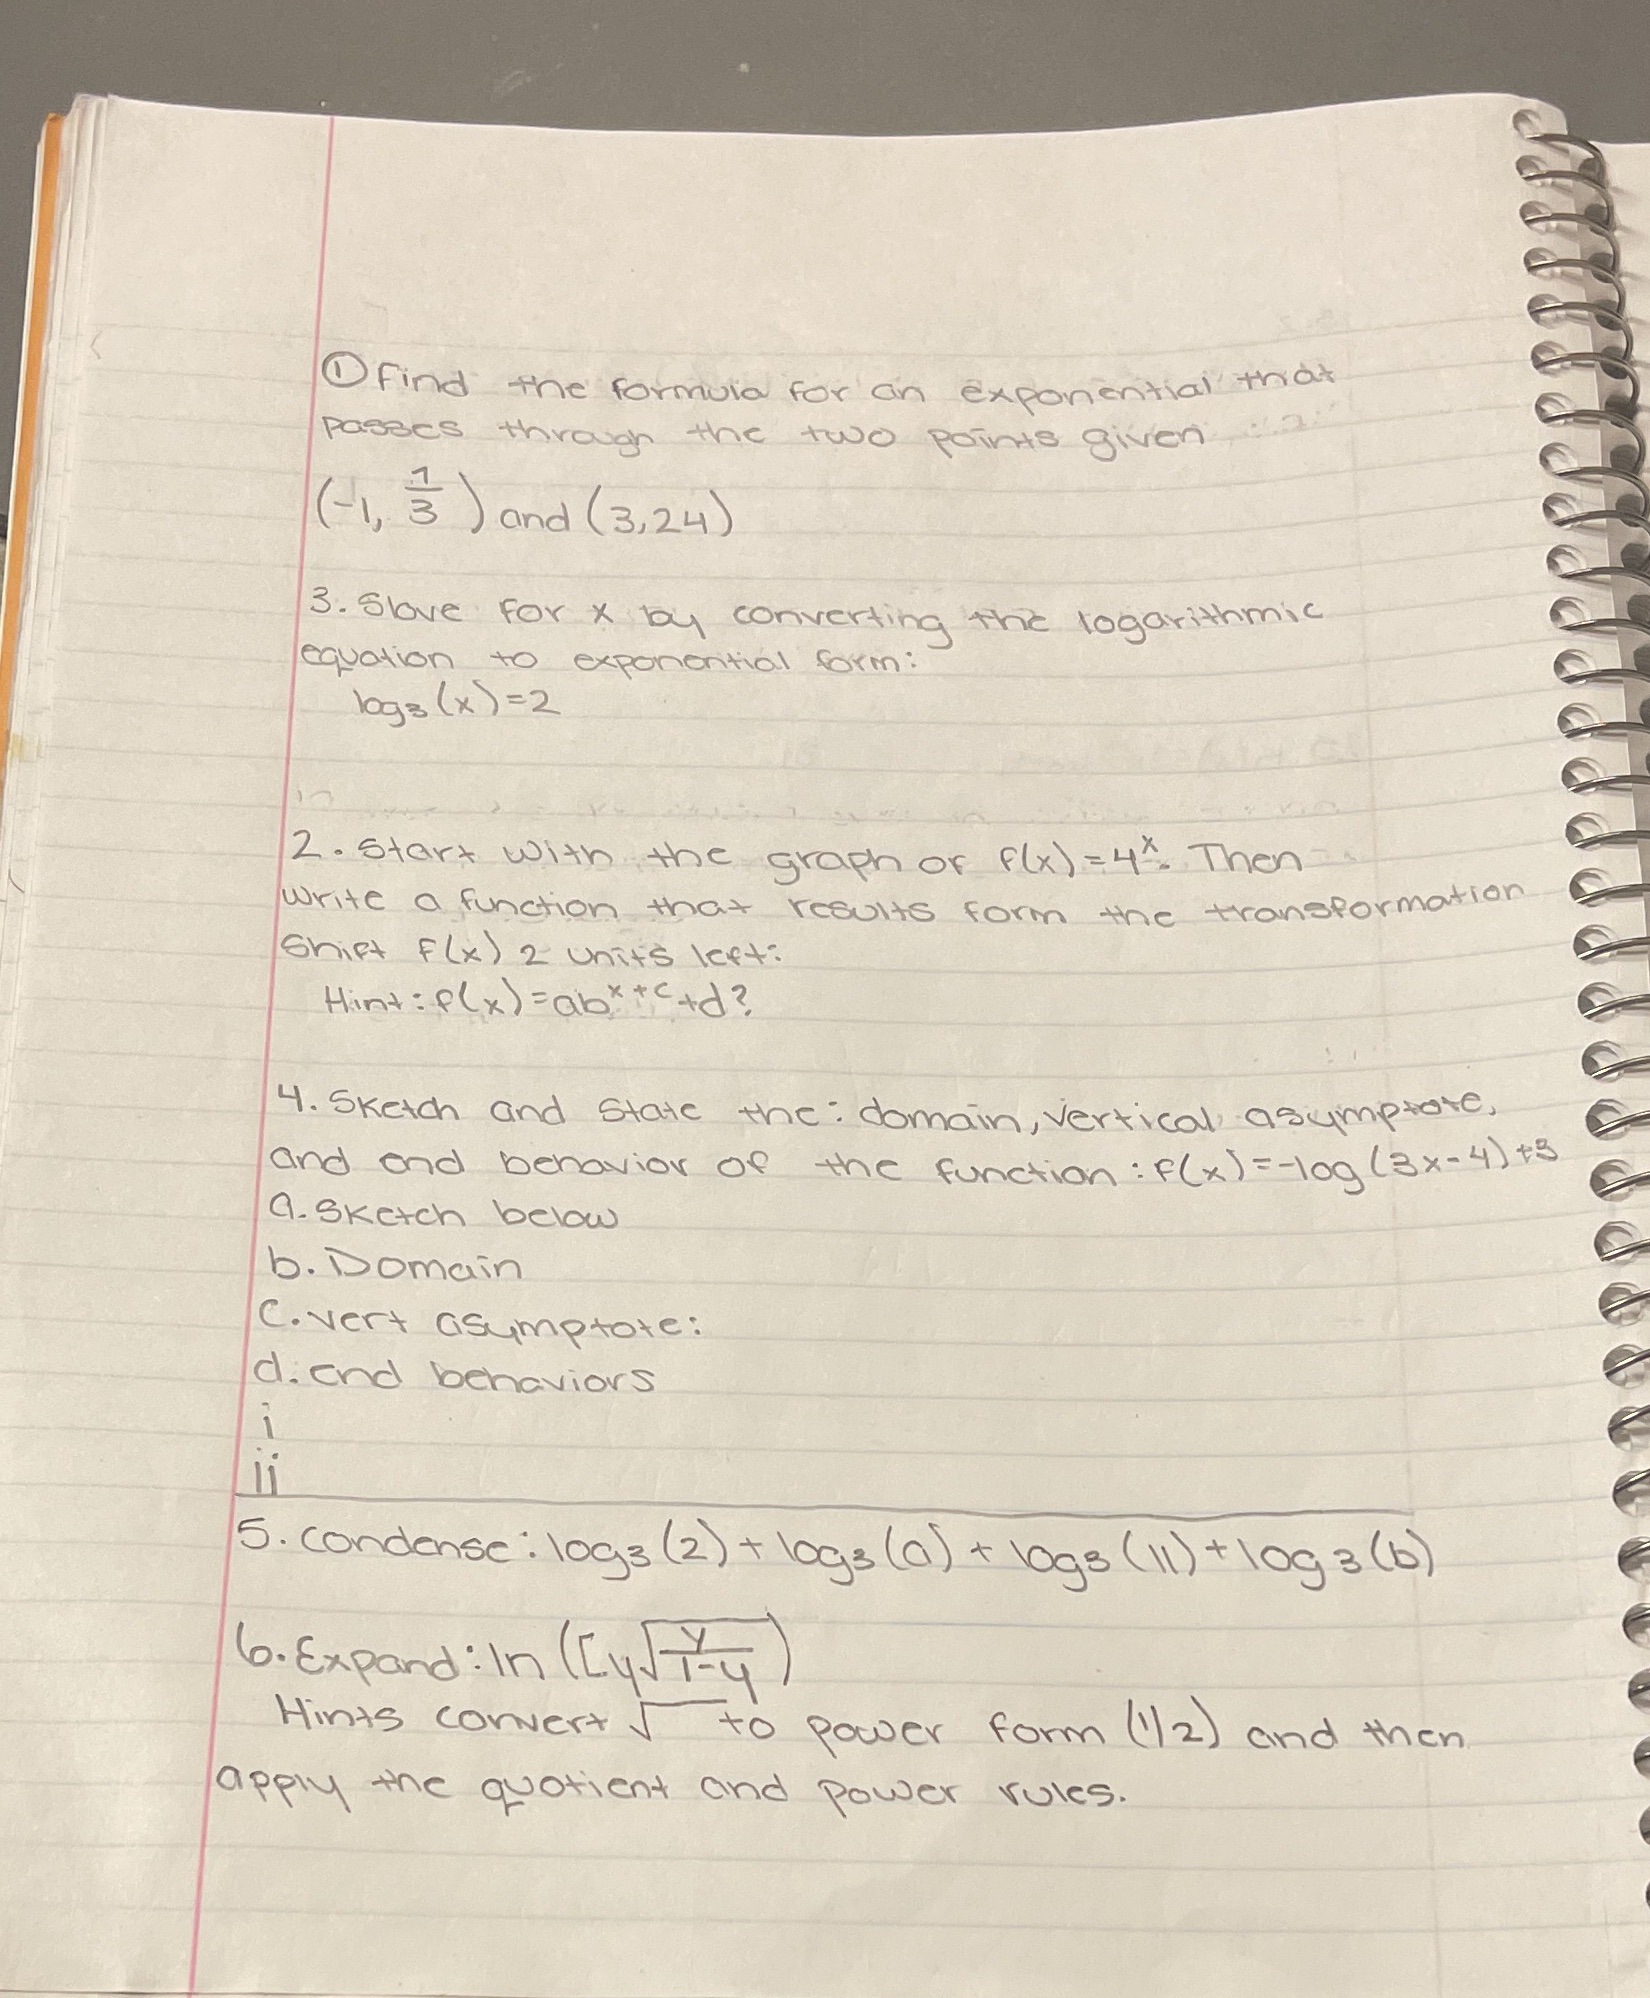 ① Find the formula for an exponential that
passes through the two points given
(-1, 1/3) and (3,24)
3. Slove for x by converting the logarithmic
equation to exponential form:
log₃(x)=2
2. Start with the graph of f(x)=4ˣ. Then
write a function that results form the transformation
Shift f(x) 2 units left:
Hint: f(x)=abˣ⁺ᶜ+d?
4. Sketch and State the: domain, vertical asymptote,
and end behavior of the function: f(x)=-log(3x-4)+3
a. Sketch below
b. Domain
C. vert asymptote:
d. end behaviors
i
ii
5. Condense: log₃(2)+log₃(a)+log₃(11)+log₃(b)
6. Expand: ln([y√(y/1-y))
Hints convert √ to power form (1/2) and then
apply the quotient and power rules.